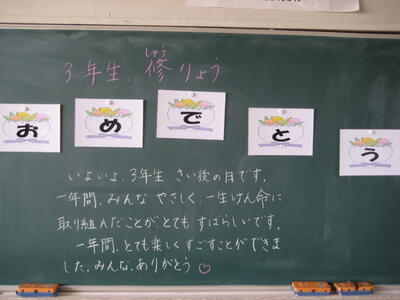 3年生、修りょう
しゅう
おめでとう
いよいよ、3年生 さい後の日です。
一年間、みんな やさしく、一生けん命に
取り組んだことが、とても すばらしいです。
一年間、とても楽しくすごすことができま
した。みんな、ありがとう♡